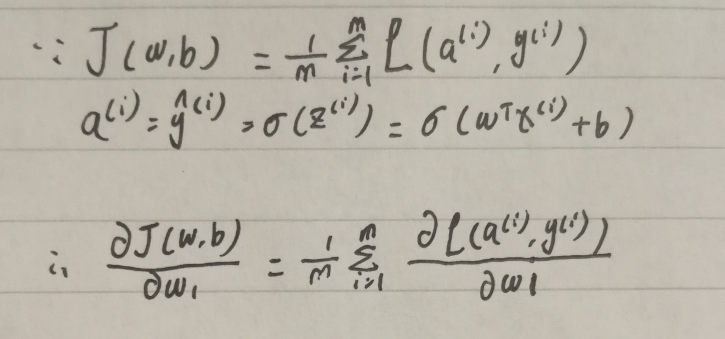 ∵ J(w,b) = 1/m Σ_{i=1}^{m} L(a^{(i)}, y^{(i)})
a^{(i)} = ŷ^{(i)} = σ(z^{(i)}) = σ(w^T x^{(i)} + b)
∴ ∂J(w,b)/∂w1 = 1/m Σ_{i=1}^{m} ∂L(a^{(i)}, y^{(i)})/∂w1